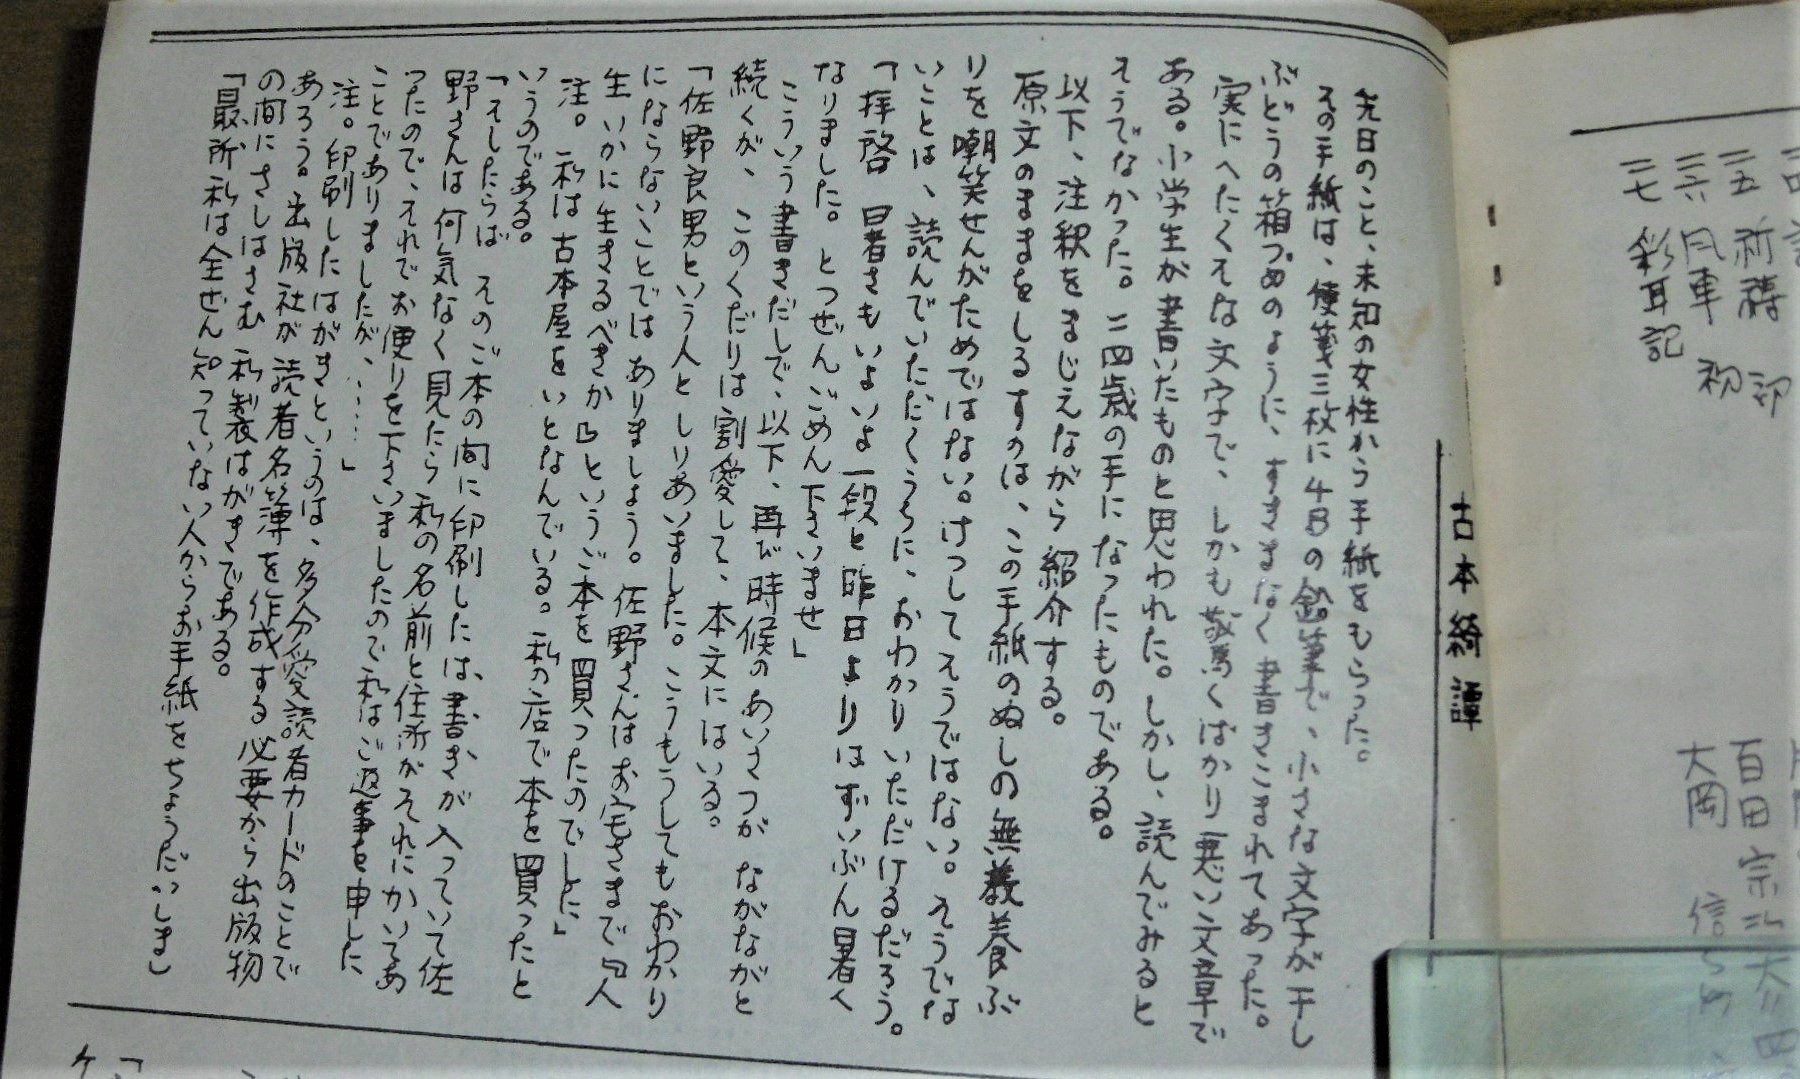 三五 祈祷
三六 風車
三七 彩耳記
百田宗治
大岡信
古本綺譚
先日のこと、未知の女性から手紙をもらった。
その手紙は、便箋三枚に4Bの鉛筆で、小さな文字が干し
ぶどうの箱づめのように、すきまなく書きこまれてあった。
実にへたくそな文字で、しかも驚くばかり悪い文章で
ある。小学生が書いたものと思われた。しかし、読んでみると
そうでなかった。二四歳の手になったものである。
以下、注釈をまじえながら紹介する。
原文のままをしるすのは、この手紙のぬしの無教養ぶ
りを嘲笑せんがためではない。けっしてそうではない。そうでな
いことは、読んでいただくうちに、おわかりいただけるだろう。
「拝啓 暑さもいよいよ一段と昨日よりはずいぶん暑く
なりました。とつぜんごめん下さいませ」
こういう書きだしで、以下、再び時候のあいさつがながながと
続くが、このくだりは割愛して、本文にはいる。
「佐野良男という人としりあいました。こうもうしてもおわかり
にならないことではありましょう。佐野さんはお宅さまで『人
生いかに生きるべきか』というご本を買ったのでした」
注。私は古本屋をいとなんでいる。私の店で本を買ったと
いうのである。
「そしたらば そのご本の間に印刷したは、書きが入っていて佐
野さんは何気なく見たら私の名前と住所がそれにかいてあ
ったので、それでお便りを下さいましたので私はご返事を申した
ことでありましたが、……」
注。印刷したはがきというのは、多分愛読者カードのことで
あろう。出版社が読者名簿を作成する必要から出版物
の間にさしはさむ私製はがきである。
「最所私は全ぜん知っていない人からお手紙をちょうだいしま